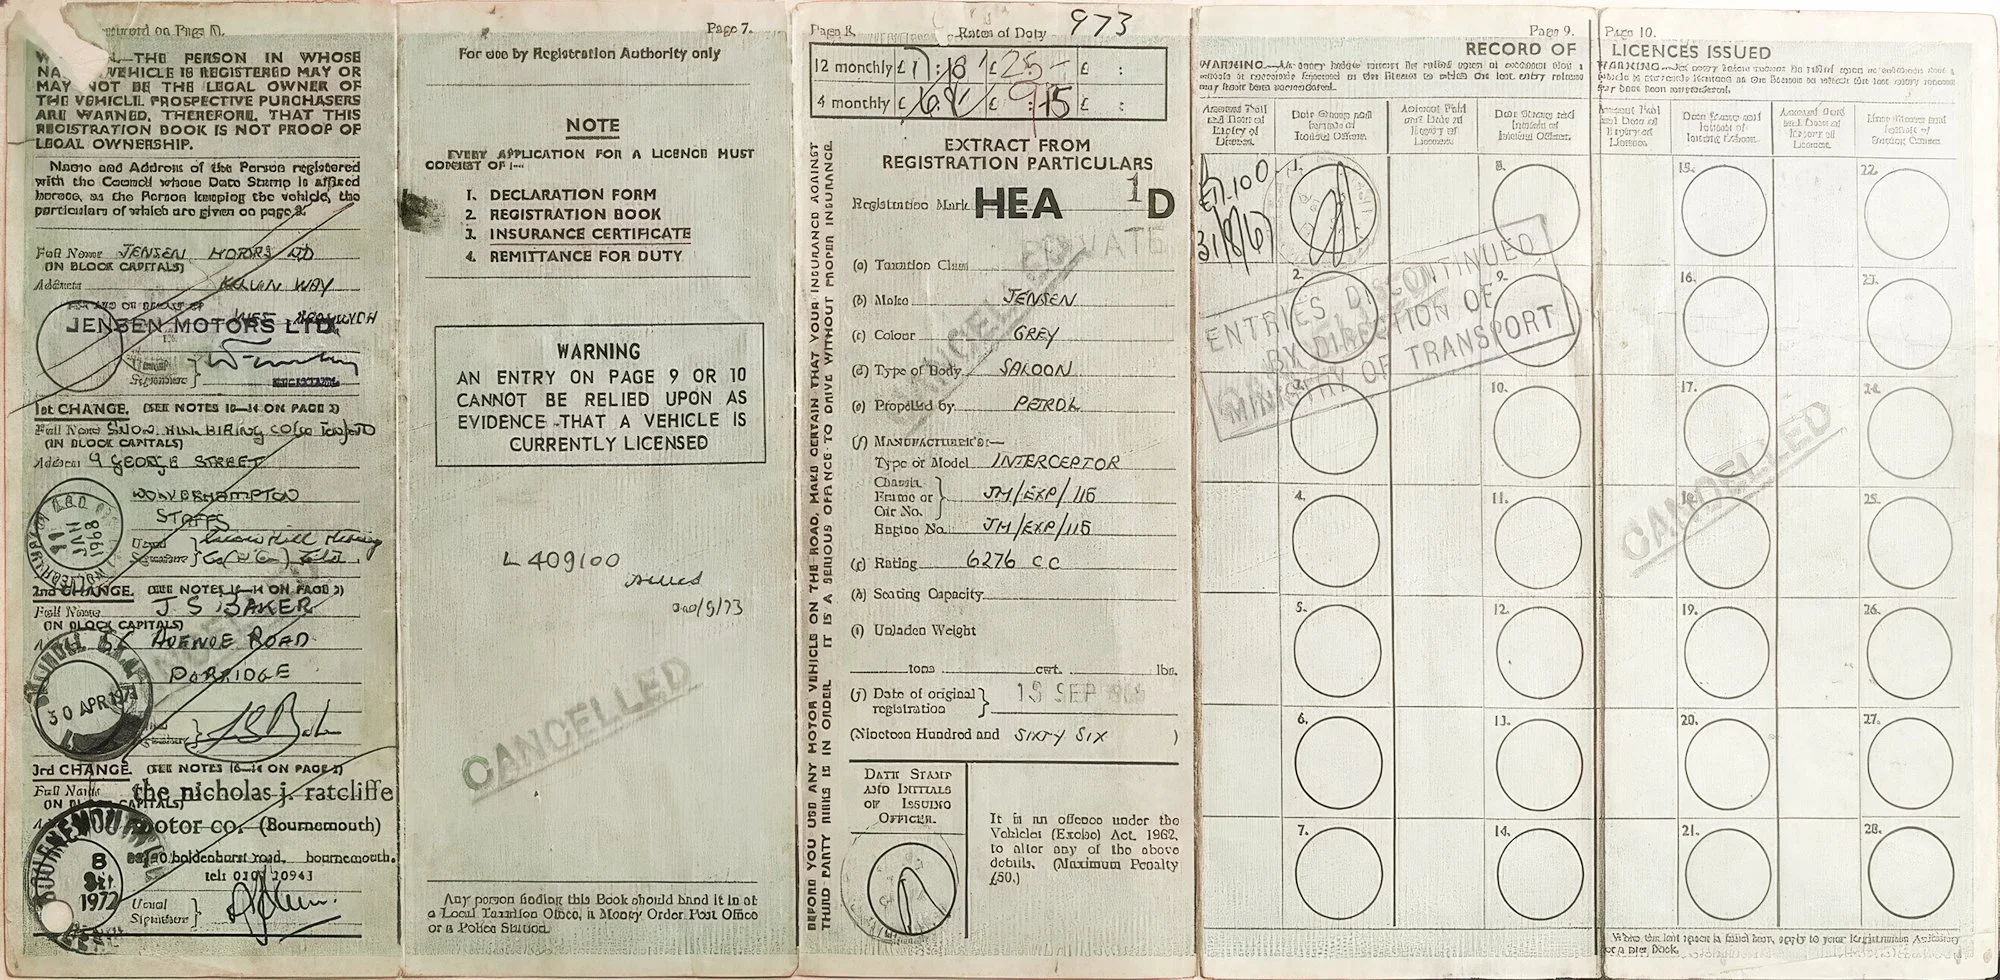 Page 6.
THE PERSON IN WHOSE
VEHICLE IS REGISTERED MAY OR
MAY NOT BE THE LEGAL OWNER OF
THE VEHICLE. PROSPECTIVE PURCHASERS
ARE WARNED, THEREFORE, THAT THIS
REGISTRATION BOOK IS NOT PROOF OF
LEGAL OWNERSHIP.
Name and Address of the Person registered
with the Council whose Date Stamp is affixed
hereto, as the Person keeping the vehicle, the
particulars of which are given on page 8.
Full Name JENSEN MOTORS LTD
(IN BLOCK CAPITALS)
Address KELVIN WAY
WEST BROMWICH
FOR AND ON BEHALF OF
JENSEN MOTORS LTD.
Usual
Signature
SECRETARY
1st CHANGE. (SEE NOTES 10—14 ON PAGE 2)
Full Name SNOW HILL HIRING CO
(IN BLOCK CAPITALS)
Address 9 GEORGE STREET
WOLVERHAMPTON
STAFFS
Usual Snow Hill Hiring
Signature Co
WOLVERHAMPTON
11 JAN 1968
2nd CHANGE. (SEE NOTES 10—14 ON PAGE 2)
Full Name J S BAKER
(IN BLOCK CAPITALS)
AVENUE ROAD
DORRIDGE
30 APR 1971
Usual
Signature
3rd CHANGE. (SEE NOTES 10—14 ON PAGE 2)
Full Name the nicholas j. ratcliffe
(IN BLOCK CAPITALS)
motor co. (Bournemouth)
holdenhurst road, bournemouth.
BOURNEMOUTH
8
1972
Usual
Signature
CANCELLED
Page 7.
For use by Registration Authority only
NOTE
EVERY APPLICATION FOR A LICENCE MUST
CONSIST OF :—
1. DECLARATION FORM
2. REGISTRATION BOOK
3. INSURANCE CERTIFICATE
4. REMITTANCE FOR DUTY
WARNING
AN ENTRY ON PAGE 9 OR 10
CANNOT BE RELIED UPON AS
EVIDENCE THAT A VEHICLE IS
CURRENTLY LICENSED
L 409100
CANCELLED
Any person finding this Book should hand it in at
a Local Taxation Office, a Money Order Post Office
or a Police Station.
Page 8.
Rates of Duty
973
12 monthly £ 17 : 10 £ 25 - £ :
4 monthly £ £ 9 : 15 £ :
EXTRACT FROM
REGISTRATION PARTICULARS
Registration Mark HEA 1 D
(a) Taxation Class PRIVATE
(b) Make JENSEN
(c) Colour GREY
(d) Type of Body SALOON
(e) Propelled by PETROL
(f) MANUFACTURER'S:—
Type or Model INTERCEPTOR
Chassis,
Frame or
Car No. JM/EXP/115
Engine No. JM/EXP/115
(g) Rating 6276 CC
(h) Seating Capacity
(i) Unladen Weight
tons cwt. lbs.
(j) Date of original
registration 13 SEP
(Nineteen Hundred and SIXTY SIX )
CANCELLED
DATE STAMP
AND INITIALS
OF ISSUING
OFFICER.
It is an offence under the
Vehicles (Excise) Act, 1962,
to alter any of the above
details. (Maximum Penalty
£50.)
BEFORE YOU USE ANY MOTOR VEHICLE ON THE ROAD, MAKE CERTAIN THAT YOUR INSURANCE AGAINST
THIRD PARTY RISKS IS IN ORDER. IT IS A SERIOUS OFFENCE TO DRIVE WITHOUT PROPER INSURANCE.
Page 9.
RECORD OF
Amount Paid
and Date of
Expiry of
Licence.
Date Stamp and
Initials of
Issuing Officer.
Amount Paid
and Date of
Expiry of
Licence.
Date Stamp and
Initials of
Issuing Officer.
£17.10.0
31/8/67
1.
2.
3.
4.
5.
6.
7.
8.
9.
10.
11.
12.
13.
14.
ENTRIES DISCONTINUED
BY DIRECTION OF
MINISTRY OF TRANSPORT
Page 10.
LICENCES ISSUED
Amount Paid
and Date of
Expiry of
Licence.
Date Stamp and
Initials of
Issuing Officer.
Amount Paid
and Date of
Expiry of
Licence.
Date Stamp and
Initials of
Issuing Officer.
15.
16.
17.
18.
19.
20.
21.
22.
23.
24.
25.
26.
27.
28.
CANCELLED